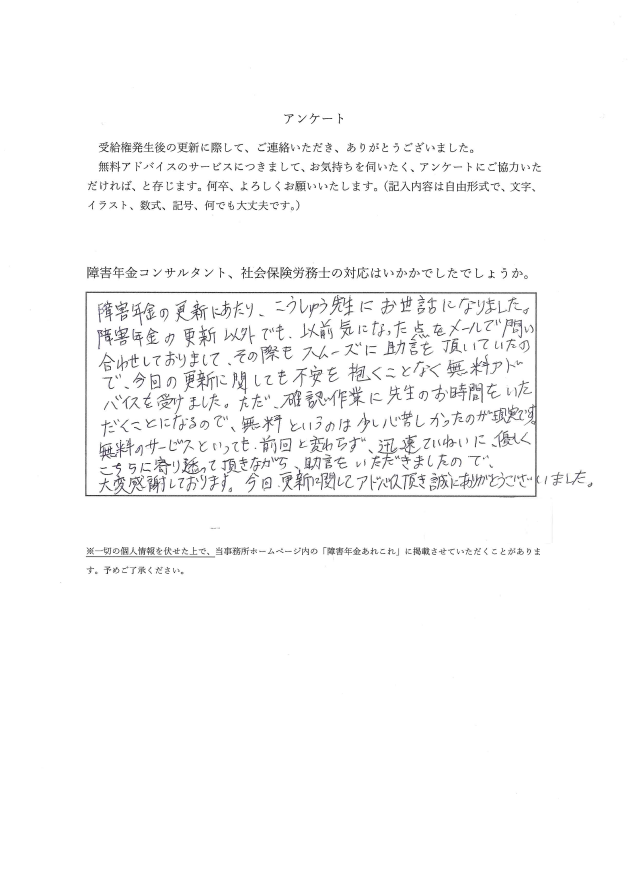 アンケート
受給権発生後の更新に際して、ご連絡いただき、ありがとうございました。
無料アドバイスのサービスにつきまして、お気持ちを伺いたく、アンケートにご協力いた
だければ、と存じます。何卒、よろしくお願いいたします。（記入内容は自由形式で、文字、
イラスト、数式、記号、何でも大丈夫です。）
障害年金コンサルタント、社会保険労務士の対応はいかかでしたでしょうか。
障害年金の更新にあたり、こうしゅう先生にお世話になりました。
障害年金の更新以外でも、以前気になった点をメールで問い
合わせしておりまして、その際もスムーズに助言を頂いていたの
で、今回の更新に関しても不安を抱くことなく無料アド
バイスを受けました。ただ、確認作業に先生のお時間をいた
だくことになるので、無料というのは少し心苦しかったのが現実です。
無料のサービスといっても、前回と変わらず、迅速ていねいに、優しく
こちらに寄り添って頂きながら、助言をいただきましたので、
大変感謝しております。今回、更新に関してアドバイス頂き誠にありがとうございました。
※一切の個人情報を伏せた上で、当事務所ホームページ内の「障害年金あれこれ」に掲載させていただくことがありま
す。予めご了承ください。